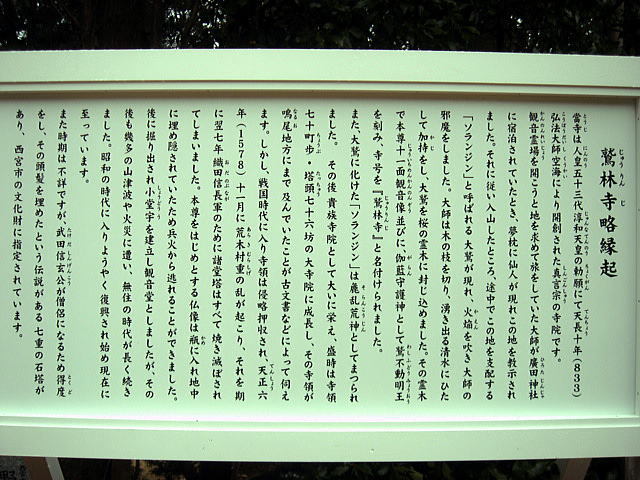 鷲林寺略縁起
當寺は人皇五十三代淳和天皇の勅願にて天長十年(833)
弘法大師空海により開創された真言宗の寺院です。
観音霊場を開こうと地を求めて旅をしていた大師が廣田神社
に宿泊されていたとき、夢枕に仙人が現れこの地を教示され
ました。それに従い入山したところ、途中でこの地を支配する
「ソランジン」と呼ばれる大鷲が現れ、火焔を吹き大師の
邪魔をしました。大師は木の枝を切り、湧き出る清水にひた
して加持をし、大鷲を桜の霊木に封じ込めました。その霊木
で本尊十一面観音像並びに、伽藍守護神として鷲不動明王
を刻み、寺号を『鷲林寺』と名付けられました。
また、大鷲に化けた「ソランジン」は麁乱荒神としてまつられ
ました。その後貴族寺院として大いに栄え、盛時は寺領
七十町歩、塔頭七十六坊の大寺院に成長し、その寺領が
鳴尾地方にまで及んでいたことが古文書などによって伺え
ます。しかし、戦国時代に入り寺領は侵略押収され、天正六
年(1578)十一月に荒木村重の乱が起こり、それを期
に翌七年織田信長軍のために諸堂塔はすべて焼き滅ぼされ
てしまいました。本尊をはじめとする仏像は瓶に入れ地中
に埋め隠されていたため兵火から逃れることができました。
後に掘り出され小堂宇を建立し観音堂としましたが、その
後も幾多の山津波や火災に遭い、無住の時代が長く続き
ました。昭和の時代に入りようやく復興され始め現在に
至っています。
また時期は不詳ですが、武田信玄公が僧侶になるため得度
をし、その頭髪を埋めたという伝説がある七重の石塔が
あり、西宮市の文化財に指定されています。